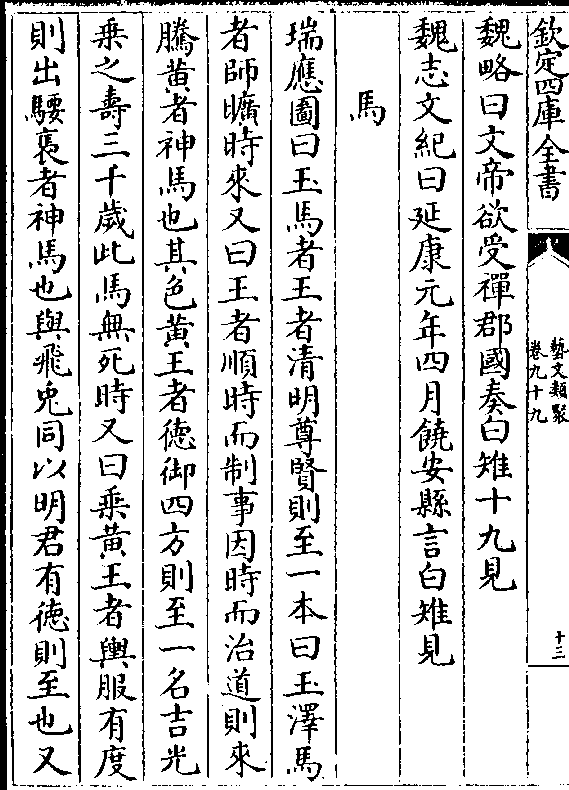 欽定四庫全書
藝文類聚
卷九十九
十三
魏略曰文帝欲受禪郡國奏白雉十九見
魏志文紀曰延康元年四月饒安縣言白雉見
馬
瑞應圖曰玉馬者王者清明尊賢則至一本曰玉澤馬
者師曠時來又曰王者順時而制事因時而治道則來
騰黄者神馬也其色黄王者德御四方則至一名吉光
乘之壽三千歲此馬無死時又曰乘黄王者輿服有度
則出騕褭者神馬也與飛兎同以明君有德則至也又